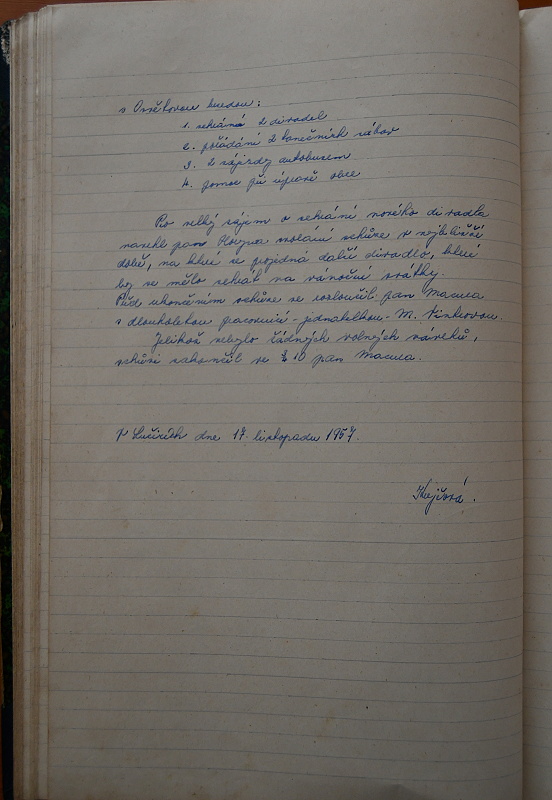 s Osvětovou besedou:
1. sehrání 2 divadel
2. pořádání 2 tanečních zábav
3. 2 zájezdy autobusem
4. pomoc při úpravě obce
Pro velký zájem o sehrání nového divadla
navrhl pan svolání schůze v nejbližší
době, na které se pojedná další divadlo, které
by se mělo sehrát na vánoční svátky.
Před ukončením schůze se rozloučil pan Macura
s dlouholetou pracovnicí - jednatelkou - M. Vinklerovou.
Jelikož nebylo žádných volných návrhů,
schůzi zakončil ve pan Macura.
V dne 17. listopadu 1957.